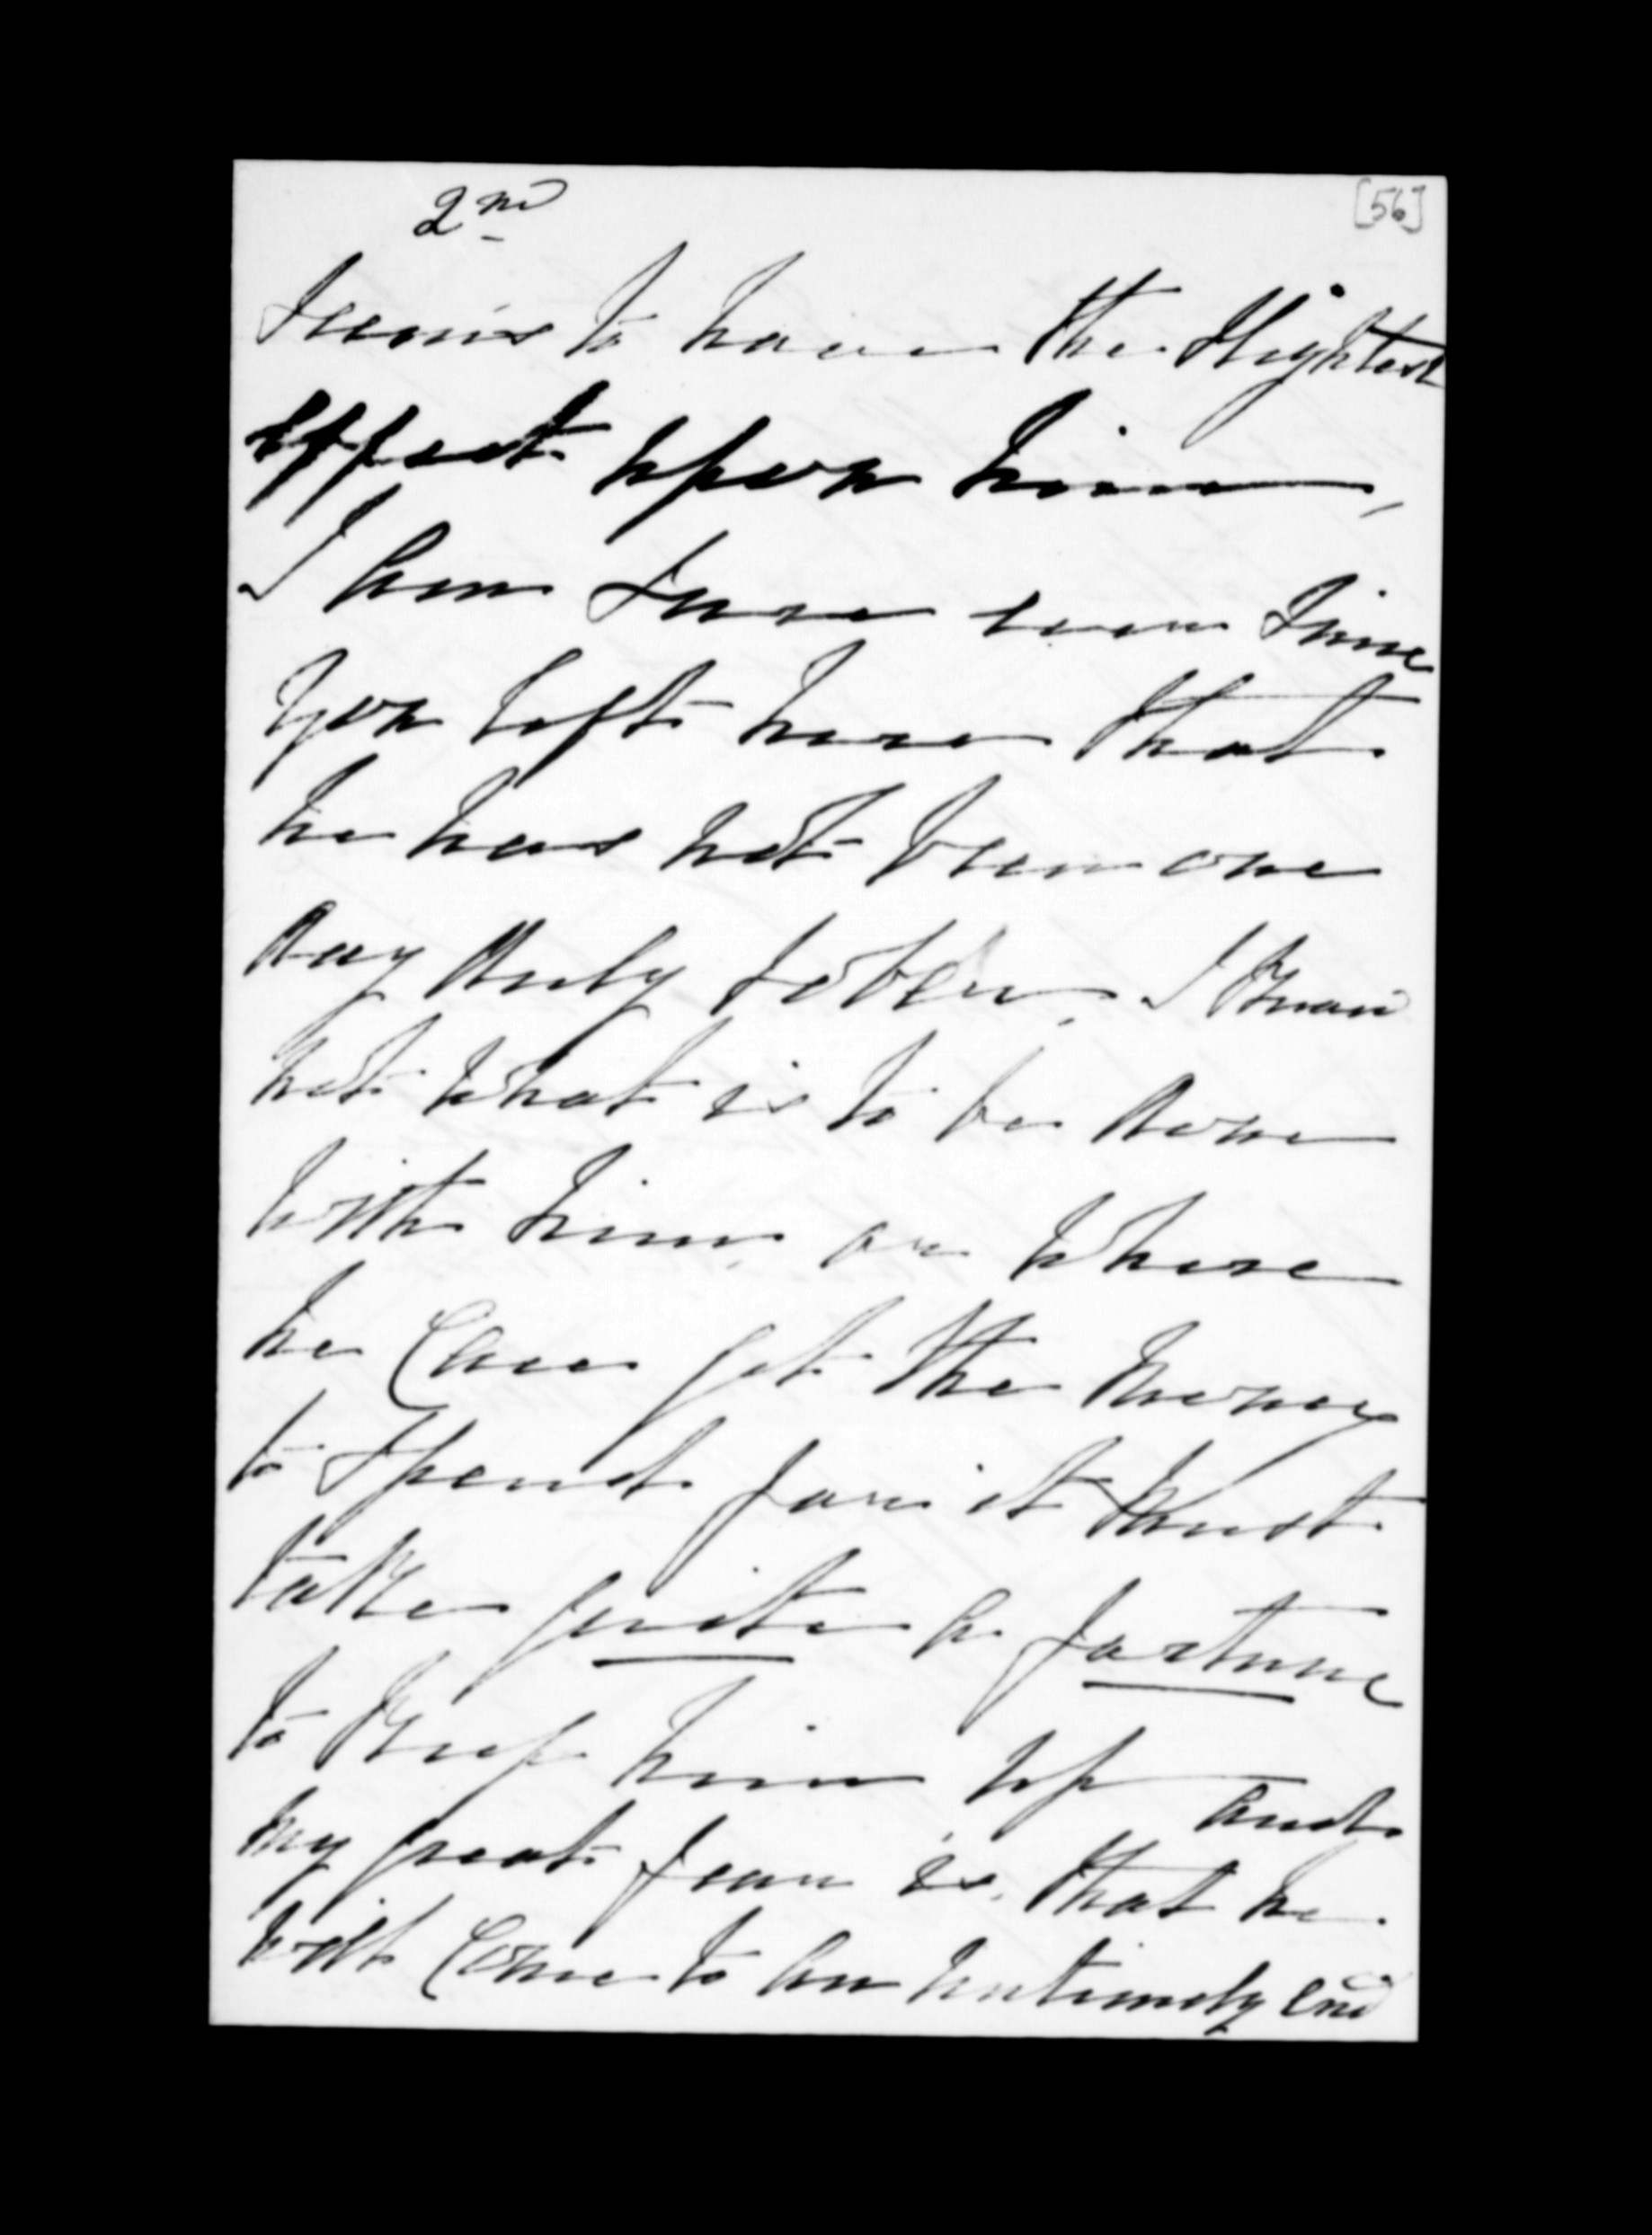 2nd
[56]
seems to have the slightest
effect upon him,
I am sure ever since
you left here that
he has not been one
day duly sober, I know
not what is to be done
with him, or where
he can get the money
to spend for it must
take quite a fortune
to keep him up and
my great fear is, that he
will come to an untimely end